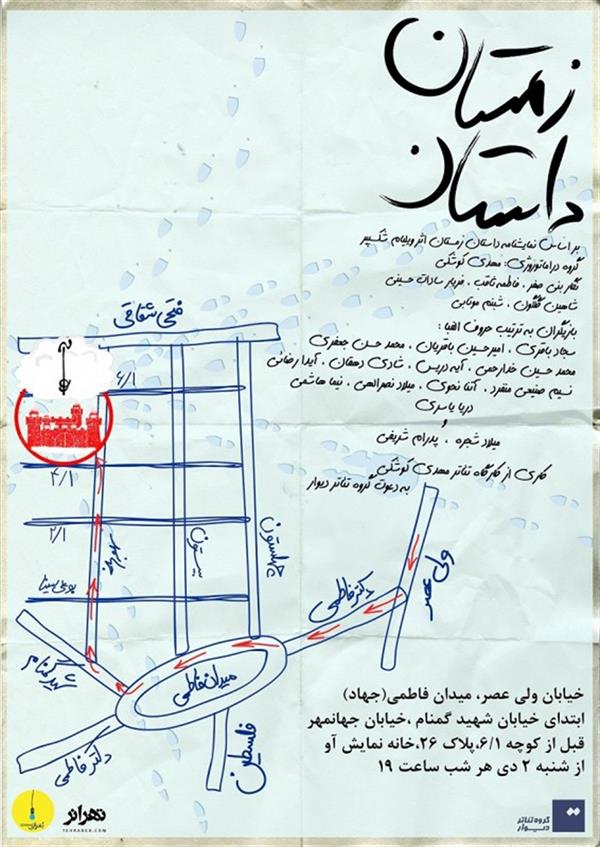 زمستان
داستان
بر اساس نمایشنامه داستان زمستان اثر ویلیام شکسپیر
گروه دراماتورژی: مهدی کوشکی
نگار بنی صفر ، فاطمه ثاقب ، فریار سادات حسینی
شاهین گلگون ، شبنم
بازیگران به ترتیب حروف الفبا :
سجاد باقری ، امیرحسین باقریان ، محمد حسن جعفری
محمد حسین خدارحمی ، آیه دریس ، شادی دهقان ، آیدا رضائی
نسیم صنیعی منفرد ، آنا نحوی ، میلاد نصرالهی ، نیما هاشمی
دریا یاسری
و
میلاد شجره ، پدرام شریفی
کاری از کارگاه تئاتر مهدی کوشکی
به دعوت گروه تئاتر دیوار
فتحی شقاقی
۶/۱
۴/۱
۲/۱
بوعلی سینا
بیستون
چهلستون
شهید گمنام
میدان فاطمی
دکتر فاطمی
دکتر فاطمی
فلسطین
ولی عصر
خیابان ولی عصر، میدان فاطمی(جهاد)
ابتدای خیابان شهید گمنام ،خیابان جهانمهر
قبل از کوچه ۶/۱،پلاک ۲۶،خانه نمایش آو
از شنبه ۲ دی هر شب ساعت ۱۹
تهرانر
TEHRANER.COM
گروه تئاتر
دیوار